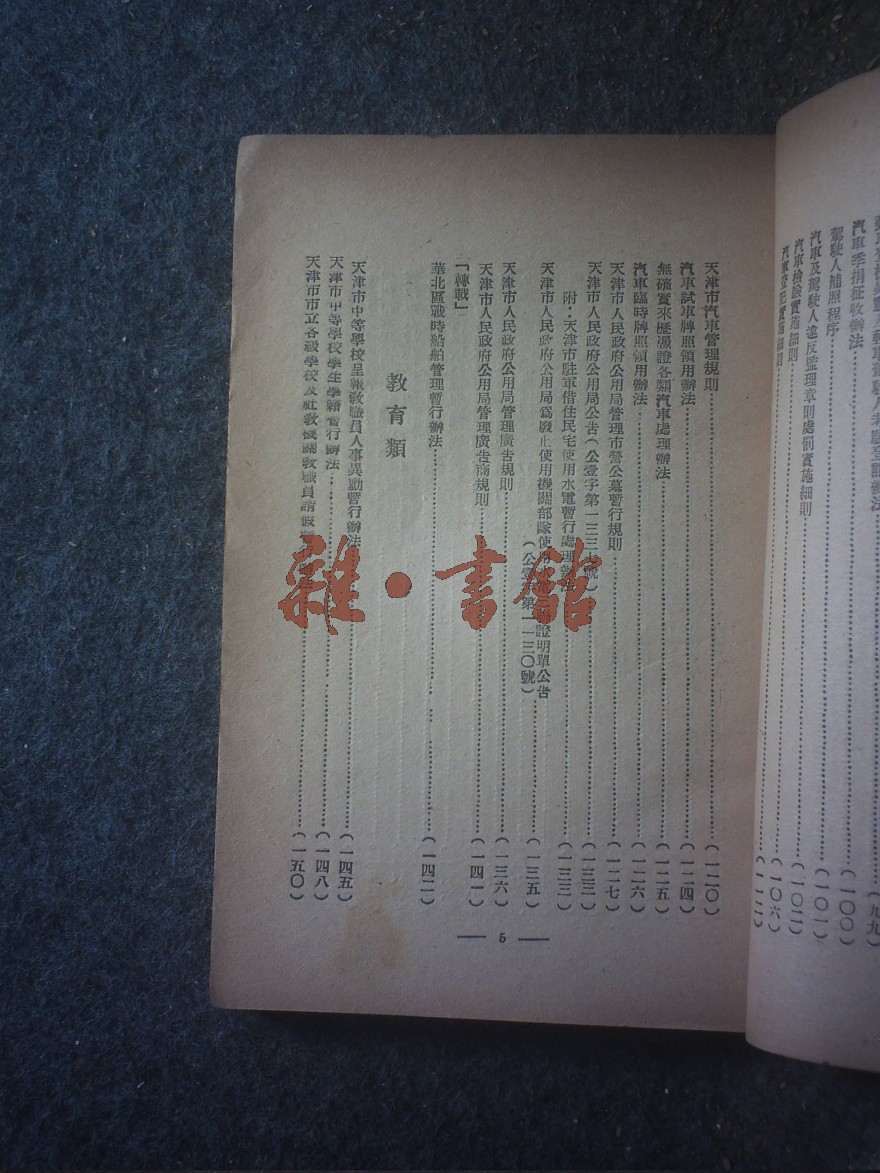 汽車季捐征收辦法……(一〇〇)
駕駛人補照程序……(一〇一)
汽車及駕駛人違反監理章則處罰實施細則……(一〇二)
汽車檢驗實施細則……(一〇六)
天津市汽車管理規則……(一二〇)
汽車試車牌照領用辦法……(一二四)
無確實來歷憑證各類汽車處理辦法……(一二五)
汽車臨時牌照領用辦法……(一二六)
天津市人民政府公用局管理市營公墓暫行規則……(一二七)
天津市人民政府公用局公告(公壹字第一三三七號)……(一三三)
附:天津市駐軍借住民宅使用水電暫行處理辦法……(一三三)
天津市人民政府公用局爲廢止使用機關部隊使用 證明單公告
(公壹字第一一三〇號)……(一三五)
天津市人民政府公用局管理廣告規則……(一三六)
天津市人民政府公用局管理廣告商規則……(一四一)
「轉載」
華北區戰時船舶管理暫行辦法……(一四二)
教育類
天津市中等學校呈報教職員人事異動暫行辦法……(一四五)
天津市中等學校學生學籍暫行辦法……(一四八)
天津市市立各級學校及社教機關教職員請假 ……(一五〇)
— 5 —
雜·書館